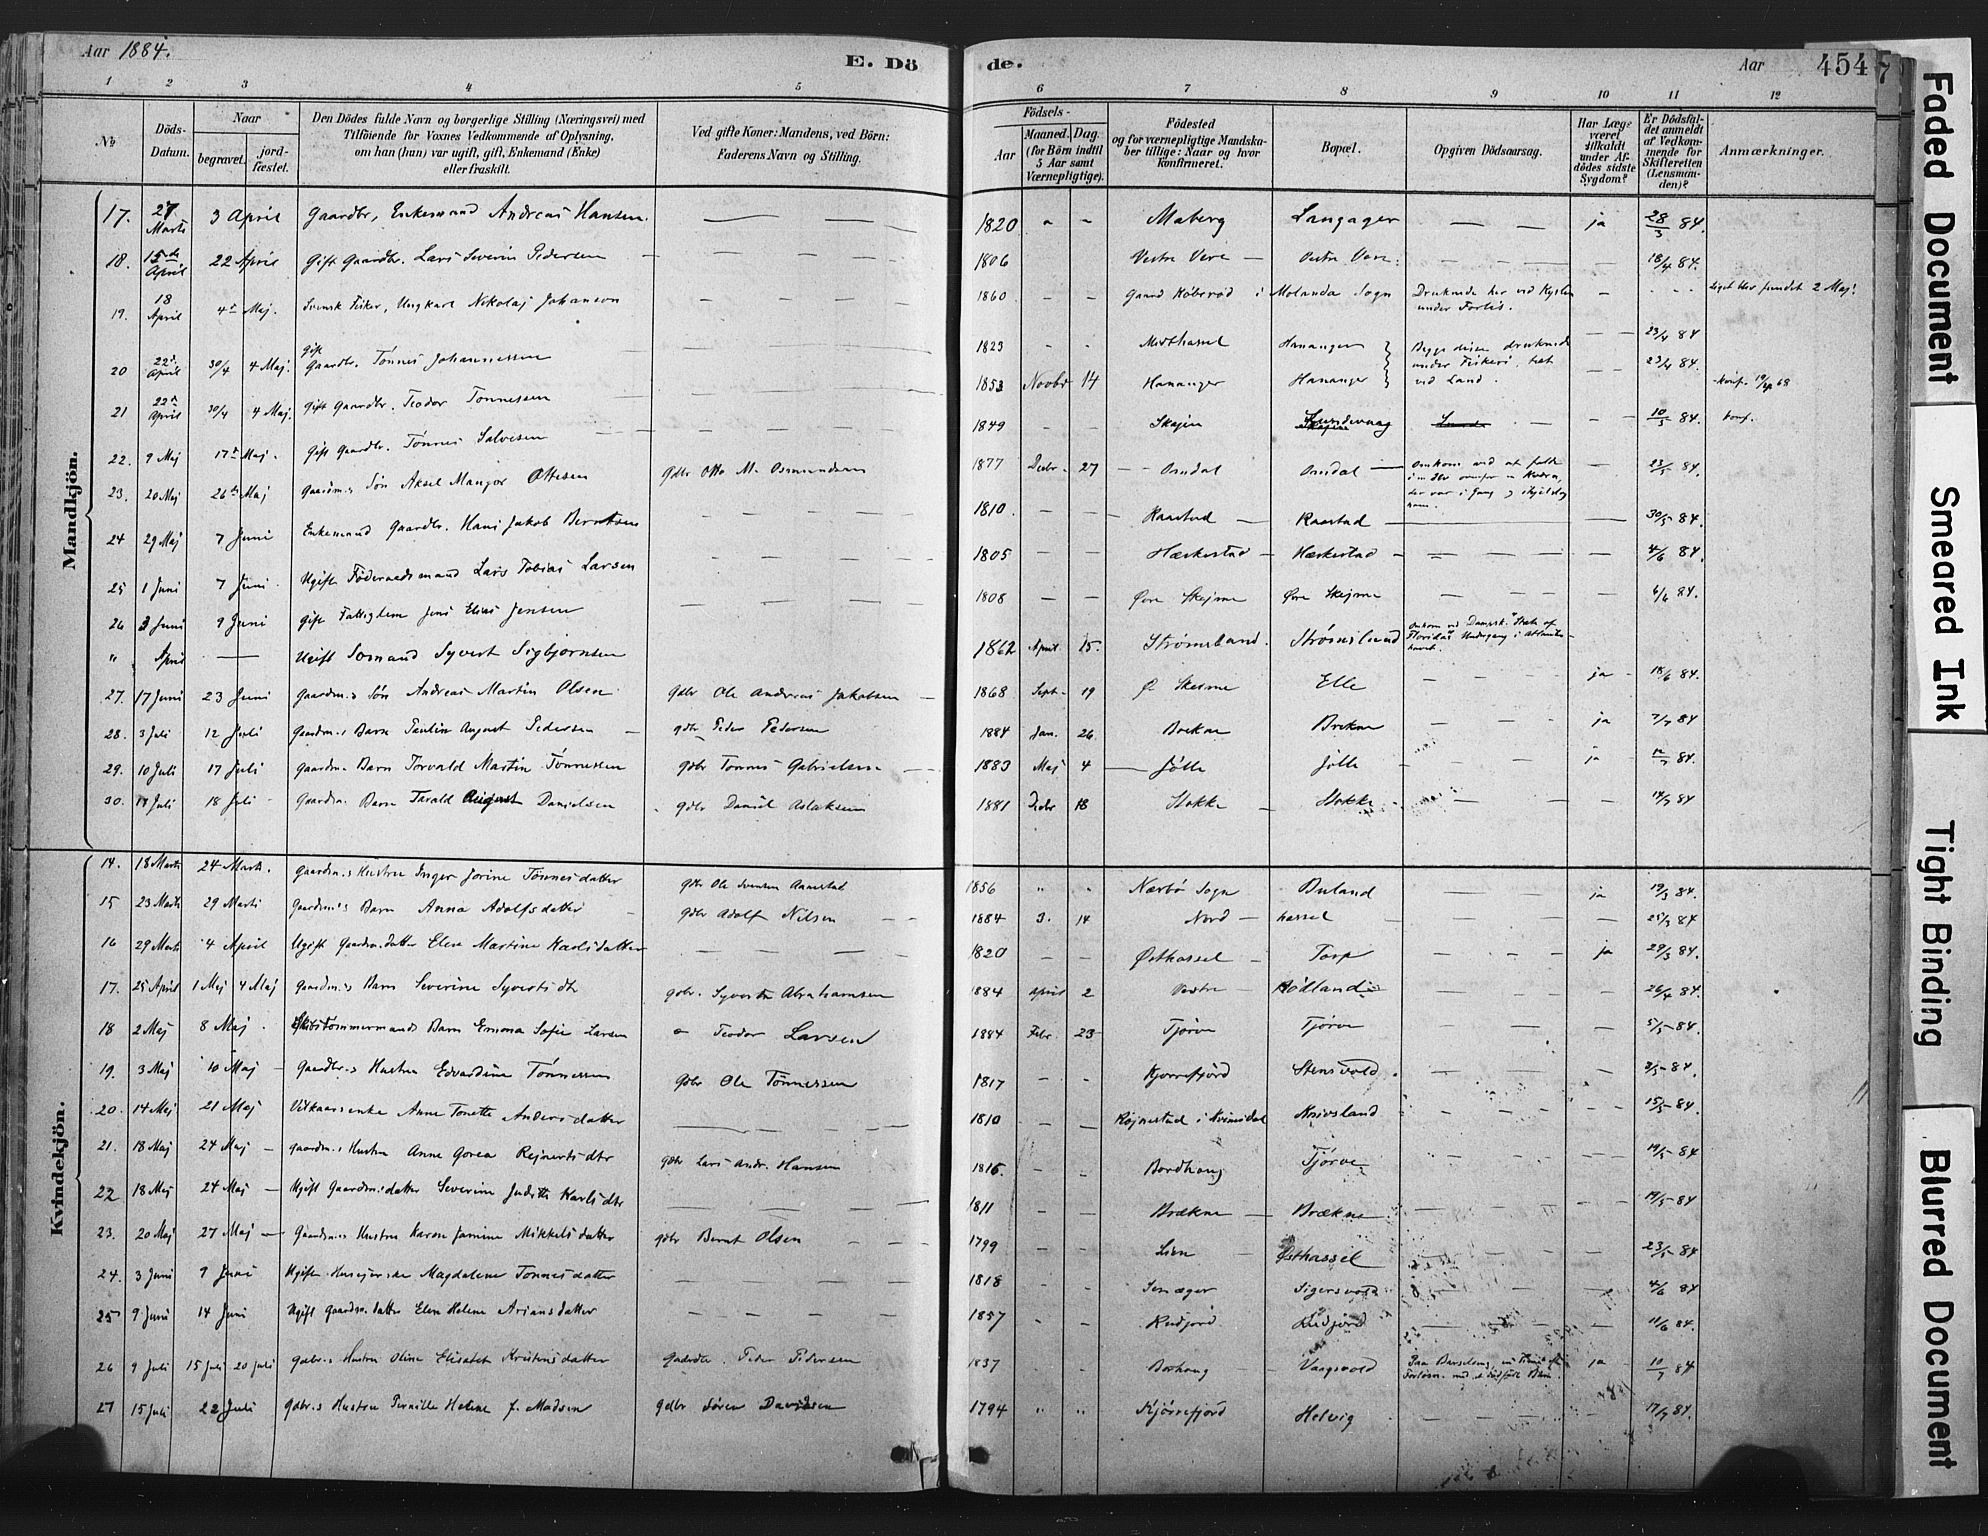 Aar 1884.
E. Dö
de.
Aar
454
7
1 2 3 4 5 6 7 8 9 10 11 12
No
Döds-
Datum.
Naar
begravet.
jord-
fæstet.
Den Dödes fulde Navn og borgerlige Stilling (Næringsvei) med
Tilföiende for Voxnes Vedkommende af Oplysning,
om han (hun) var ugift, gift, Enkemand (Enke)
eller fraskilt.
Ved gifte Koner: Mandens, ved Börn:
Faderens Navn og Stilling.
Födsels-
Aar
Maaned. Dag.
(for Börn indtil
5 Aar samt
Værnepligtige).
Födested
og for værnepligtige Mandska-
ber tillige: Naar og hvor
konfirmeret.
Bopæl.
Opgiven Dödsaarsag.
Har Læge
været
tilkaldt
under Af-
dödes sidste
Sygdom?
Er Dödsfal-
det anmeldt
af Vedkom-
mende for
Skifteretten
(Lensman-
den)?
Anmærkninger.
Mandkjön.
17. 27 Marts 3 April Gaardbr, Enkemand Andreas Hansen. 1820 Maberg Langager ja 28/3 84.
18. 15de April 22 April Gift Gaardbr. Lars Severin Pedersen 1806 Vestre Vere Vestre Vere 18/4 84.
19. 18 April 4de Maj. Svensk Fisker, Ungkarl Nikolaj Johanson 1860 Gaard Köberöd i Molanda Sogn Druknede her ved Kysten
under Forlis. Liget blev fundet 2 Maj.
20 22de April 30/4 4 Maj. Gift Gaardbr. Tönnes Johannessen 1823 Midthassel Hananger Begge disse druknede
under Fiskeri tæt
ved Land. 23/4 84
21 22de April 30/4 4 Maj. Gift Gaardbr. Teodor Tönnessen 1853 Novbr 14 Hananger Hananger 23/4 84. Konf. 68
22. 9 Maj 17de Maj. Gift Gaardbr. Tönnes Salvesen 1849 Skajem Lundevaag 10/5 84. konf.
23. 20 Maj 26de Maj Gaardm.s Sön Aksel Mangor Ottesen Gdbr Otto M. Osmundsen 1877 Decbr. 27 Omdal Omdal Omkom ved at falde 23/5 84.
24 29 Maj 7 Juni Enkemand Gaardbr. Hans Jakob Berntsen 1810. Kaastad Kaastad 30/5 84.
25 1 Juni 7 Juni. Ugift Föderaadsmand Lars Tobias Larsen 1805 Hærkestad Hærkestad 4/6 84
26 3 Juni 9 Juni Gift Fattiglem Jens Elias Jensen 1808 Övre Skejme Övre Skejme 6/6 84.
" April Ugift Sömand Syvert Sigbjörnsen 1862 April 15. Strömsland. Strömsland Omkom ved Dampsk. "State of
Florida's" Undergang i Atlanter-
havet.
27. 17 Juni 23 Juni Gaardm.s Sön Andreas Martin Olsen Gdbr Ole Andreas Jakobsen 1868 Sept. 19 Ö. Skeime Elle ja 18/6 84.
28. 3 Juli 12 Juli Gaardm.s Barn Paulin August Pedersen gdbr Peder Pedersen 1884 Jan. 26 Brekne Brekne ja 7/7 84
29. 10 Juli 17 Juli Gaardm. Barn Torvald Martin Tönnesen gdbr Tönnes Gabrielsen 1883 Maj 4 Jölle Jölle ja 12/7 84.
30. 11 Juli 18 Juli Gaardm. Barn Tarald August Danielsen gdbr Daniel Aslaksen 1881 Decbr 18 Stokke Stokke 14/7 84
Kvindekjön.
14. 18 Marts 24 Marts. Gaardm.s Hustru Inger Jorine Tönnesdatter gdbr Ole Svensen Aanestad 1856 Nærbö Sogn Buland ja 19/3 84.
15 23 Marts 29 Marts Gaardm.s Barn Anna Adolfsdatter gdbr Adolf Nilsen 1884 3. 14 Nord - hassel 25/3 84
16 29 Marts 4 April Ugift Gaardm. datter Elen Martine Karlsdatter 1820 Östhassel Torp ja 29/3 84.
17. 25 April 1 Maj 4 Maj Gaardm.s Barn Severine Syvertsdtr gdbr. Syvert Abrahamsen 1884 April 2 Vestre Rödland 26/4 84.
18 2 Maj 8 Maj. Skibstömmermands Barn Emma Sofie Larsen Teodor Larsen 1884 Febr. 23 Tjörve Tjörve 5/5 84.
19. 3 Maj 10 Maj Gaardbr.s Hustru Edvardine Tönnessen Gdbr Ole Tönnessen 1817 Kjørrefjord Stensvold. 3/5 84.
20. 14 Maj 21 Maj Vilkaarsenke Anne Tonette Andersdatter 1810 Röjnestad i Kvinesdal Knivsland 15/5 84.
21. 18 Maj 24 Maj Gaardm.s Hustru Anne Gorea Rejnertsdtr gdbr Lars Andr. Hansen 1816. Bordhaug Tjörve 19/5 84
22 18 Maj 24 Maj Ugift Gaardm.s datter Severine Judithe Karlsdtr 1811 Brækne Brækne 19/5 84
23. 20 Maj 27 Maj Gaardm.s Hustru Karen Jamine Mikkelsdatter gdbr Bernt Olsen 1799 Lien Östhassel 23/5 84
24. 3 Juni 9 Juni Ugift Magdalene Tönnesdatter 1818 Sigersvold 4/6 84
25 9 Juni 14 Juni Ugift Gaardm. datter Elen Helene Ariansdatter 1857 Rudjord Rudjord 11/6 84.
26 9 Juli 15 Juli 20 Juli Gdbr.s Hustru Oline Elisabet Kristensdatter Gaardbr. Peder Pedersen 1837 Borhaug Vaagsvold Paa Barselseng
Forlösn. med et dödfödt Barn. ja 10/7 84
27 15 Juli 22 Juli Gdbr.s Hustru Pernille Helene f. Madsen gdbr Sören Davidsen 1794 Kjörrefjord Helvig 17/7 84.
Faded Document
Smeared Ink
Tight Binding
Blurred Document